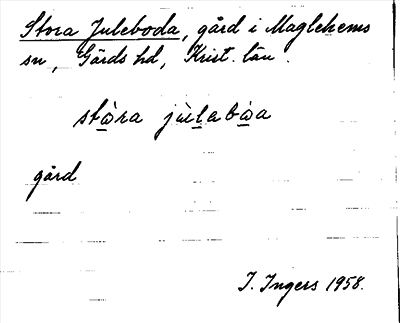 Stora Juleboda, gård i Maglehems
sn, Gärds hd, Krist. län.
stòra jùlabòa
gård
I. Ingers 1958.